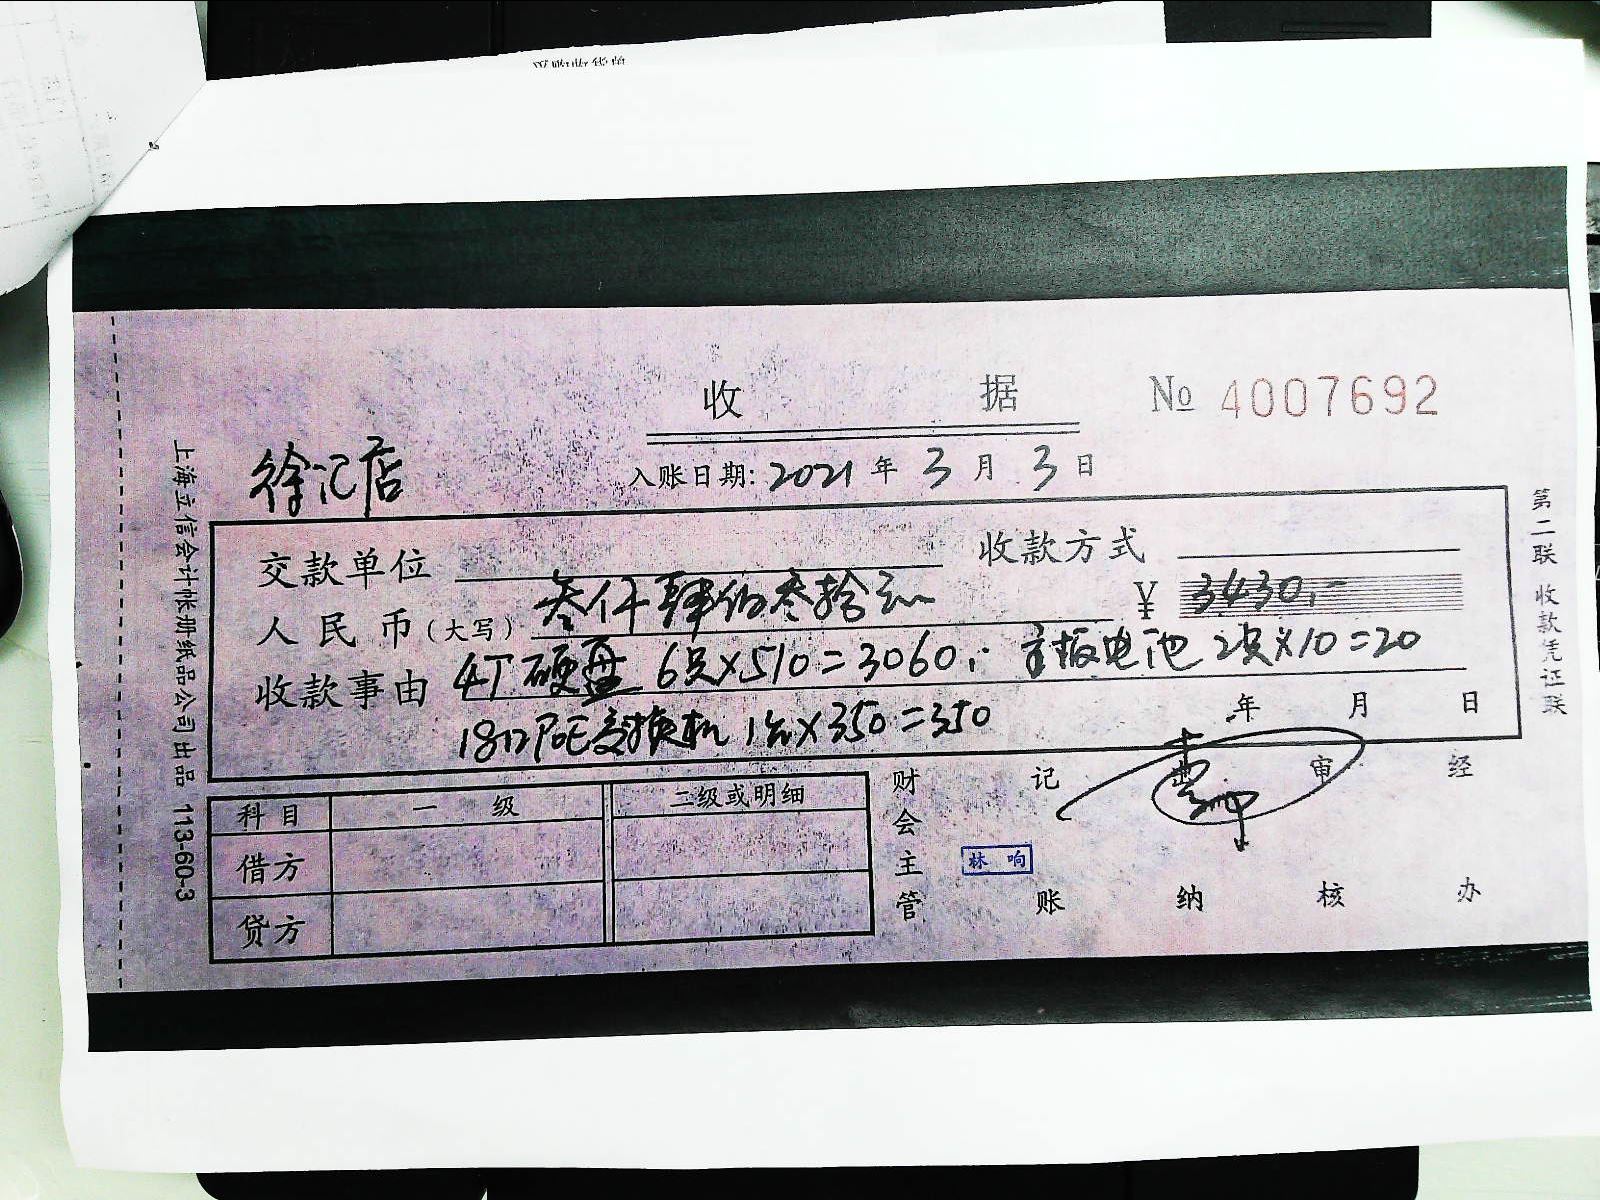 收 据 № 4007692
徐汇店
入账日期: 2021 年 3 月 3 日
交款单位 收款方式
人民币(大写) 叁仟肆佰叁拾元 ¥ 3430.-
收款事由 4T硬盘 6只×510=3060.- 主板电池 2只×10=20
18口POE交换机 1台×350=350
年 月 日
科目 一 级 二级或明细
借方
贷方
财会主管 记账 出纳 审核 经办
林 响
第二联 收款凭证联
上海立信会计帐册纸品公司出品 113-60-3